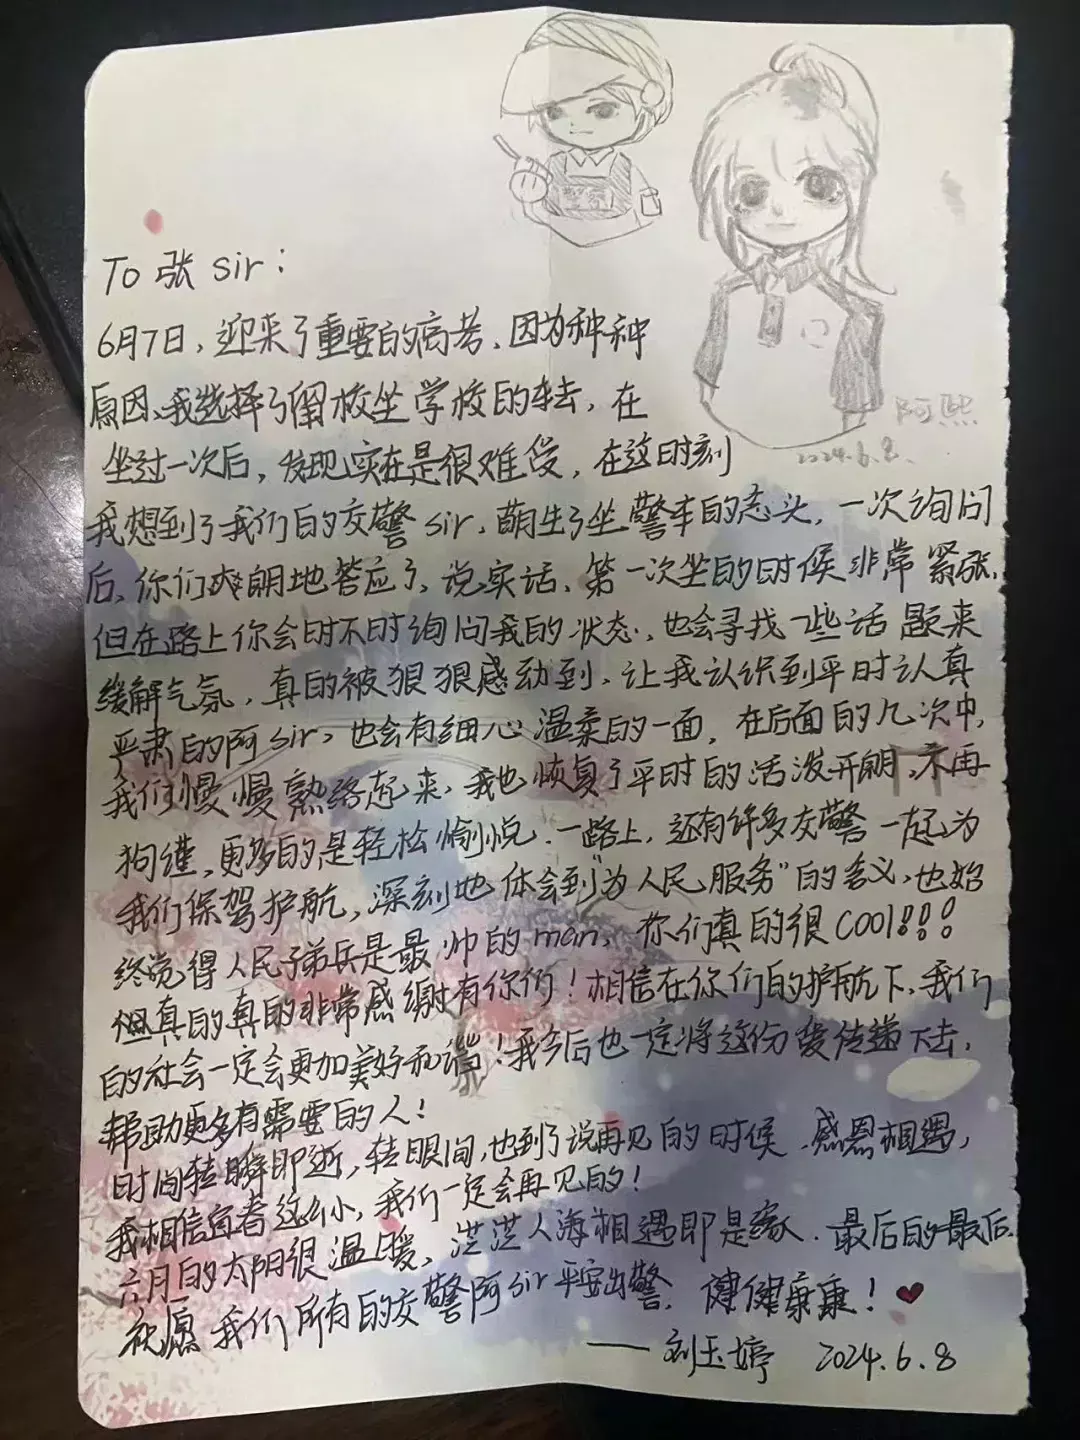 To 张 sir：
6月7日，迎来了重要的高考、因为种种
原因、我选择了留校坐学校的车去，在
坐过一次后，发现实在是很难受，在这时刻
我想到了我们的交警 sir，萌生了坐警车的念头，一次询问
后，你们爽朗地答应了，说实话，第一次坐的时候非常紧张，
但在路上你会时不时询问我的状态，也会寻找一些话题来
缓解气氛，真的被狠狠感动到，让我认识到平时认真
严肃的阿sir，也会有细心温柔的一面，在后面的几次中，
我们慢慢熟络起来，我也恢复了平时的活泼开朗，不再
拘谨，更多的是轻松愉悦．一路上，还有许多交警一起为
我们保驾护航，深刻地体会到“为人民服务”的含义，也始
终觉得人民子弟兵是最帅的man，你们真的很cool!!!
但真的真的非常感谢有你们！相信在你们的护航下，我们
的社会一定会更加美好和谐！我今后也一定将这份爱传递下去，
帮助更多有需要的人！
时间转瞬即逝，转眼间，也到了说再见的时候．感恩相遇，
我相信宜春这么小，我们一定会再见的！
六月的太阳很温暖，茫茫人海相遇即是缘．最后的最后，
祝愿我们所有的交警阿sir平安出警．健健康康！
——刘玉婷 2024.6.8
阿熙
2024.6.8.